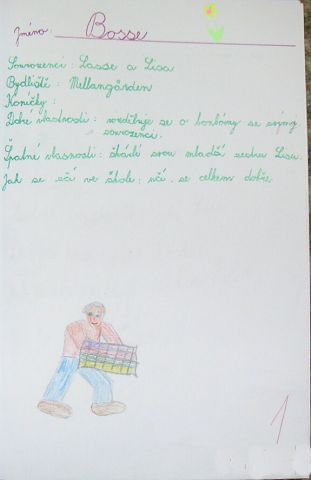 Jméno: Bosse
Sourozenci: Lasse a Lisa
Bydliště: Mellangården
Koníčky:
Dobré vlastnosti: rozděluje se o bonbóny se svými
sourozenci.
Špatné vlasnosti: škádlí svou mladší sestru Lisu.
Jak se učí ve škole: učí se celkem dobře
1